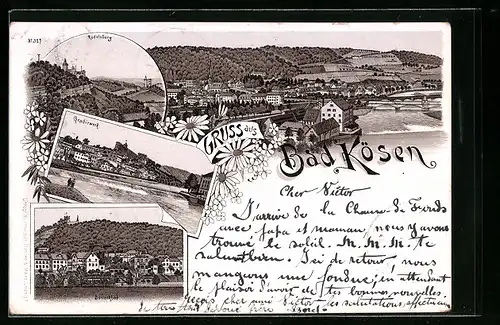 Rudelsburg
Gruss aus
Bad Kösen
Gradirwerk
Cher Victor
J'arrive de la Chaux-de-Fonds
avec papa et maman, nous y avons
trouvé le soleil. M. M. M. te
saluent bien. Ici de retour, nous
mangeons une fondue, en attendant
le plaisir d'avoir de tes bonnes nouvelles
reçois cher ami Victor les salutations affectueuses
de ton